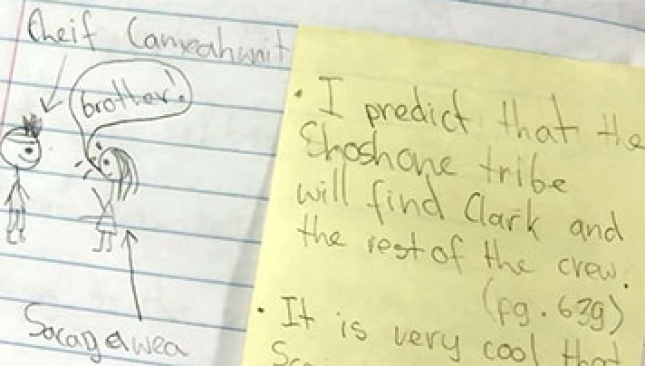 Cheif Cameahwait
brother!
Sacagawea
• I predict that the
Shoshone tribe
will find Clark and
the rest of the crew.
(pg. 639)
• It is very cool that